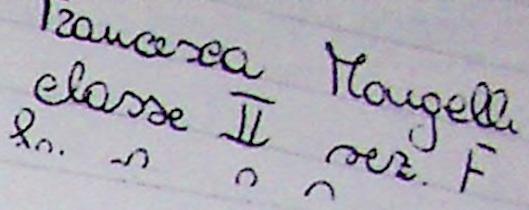 Francesca Mongelli
classe II sez. F